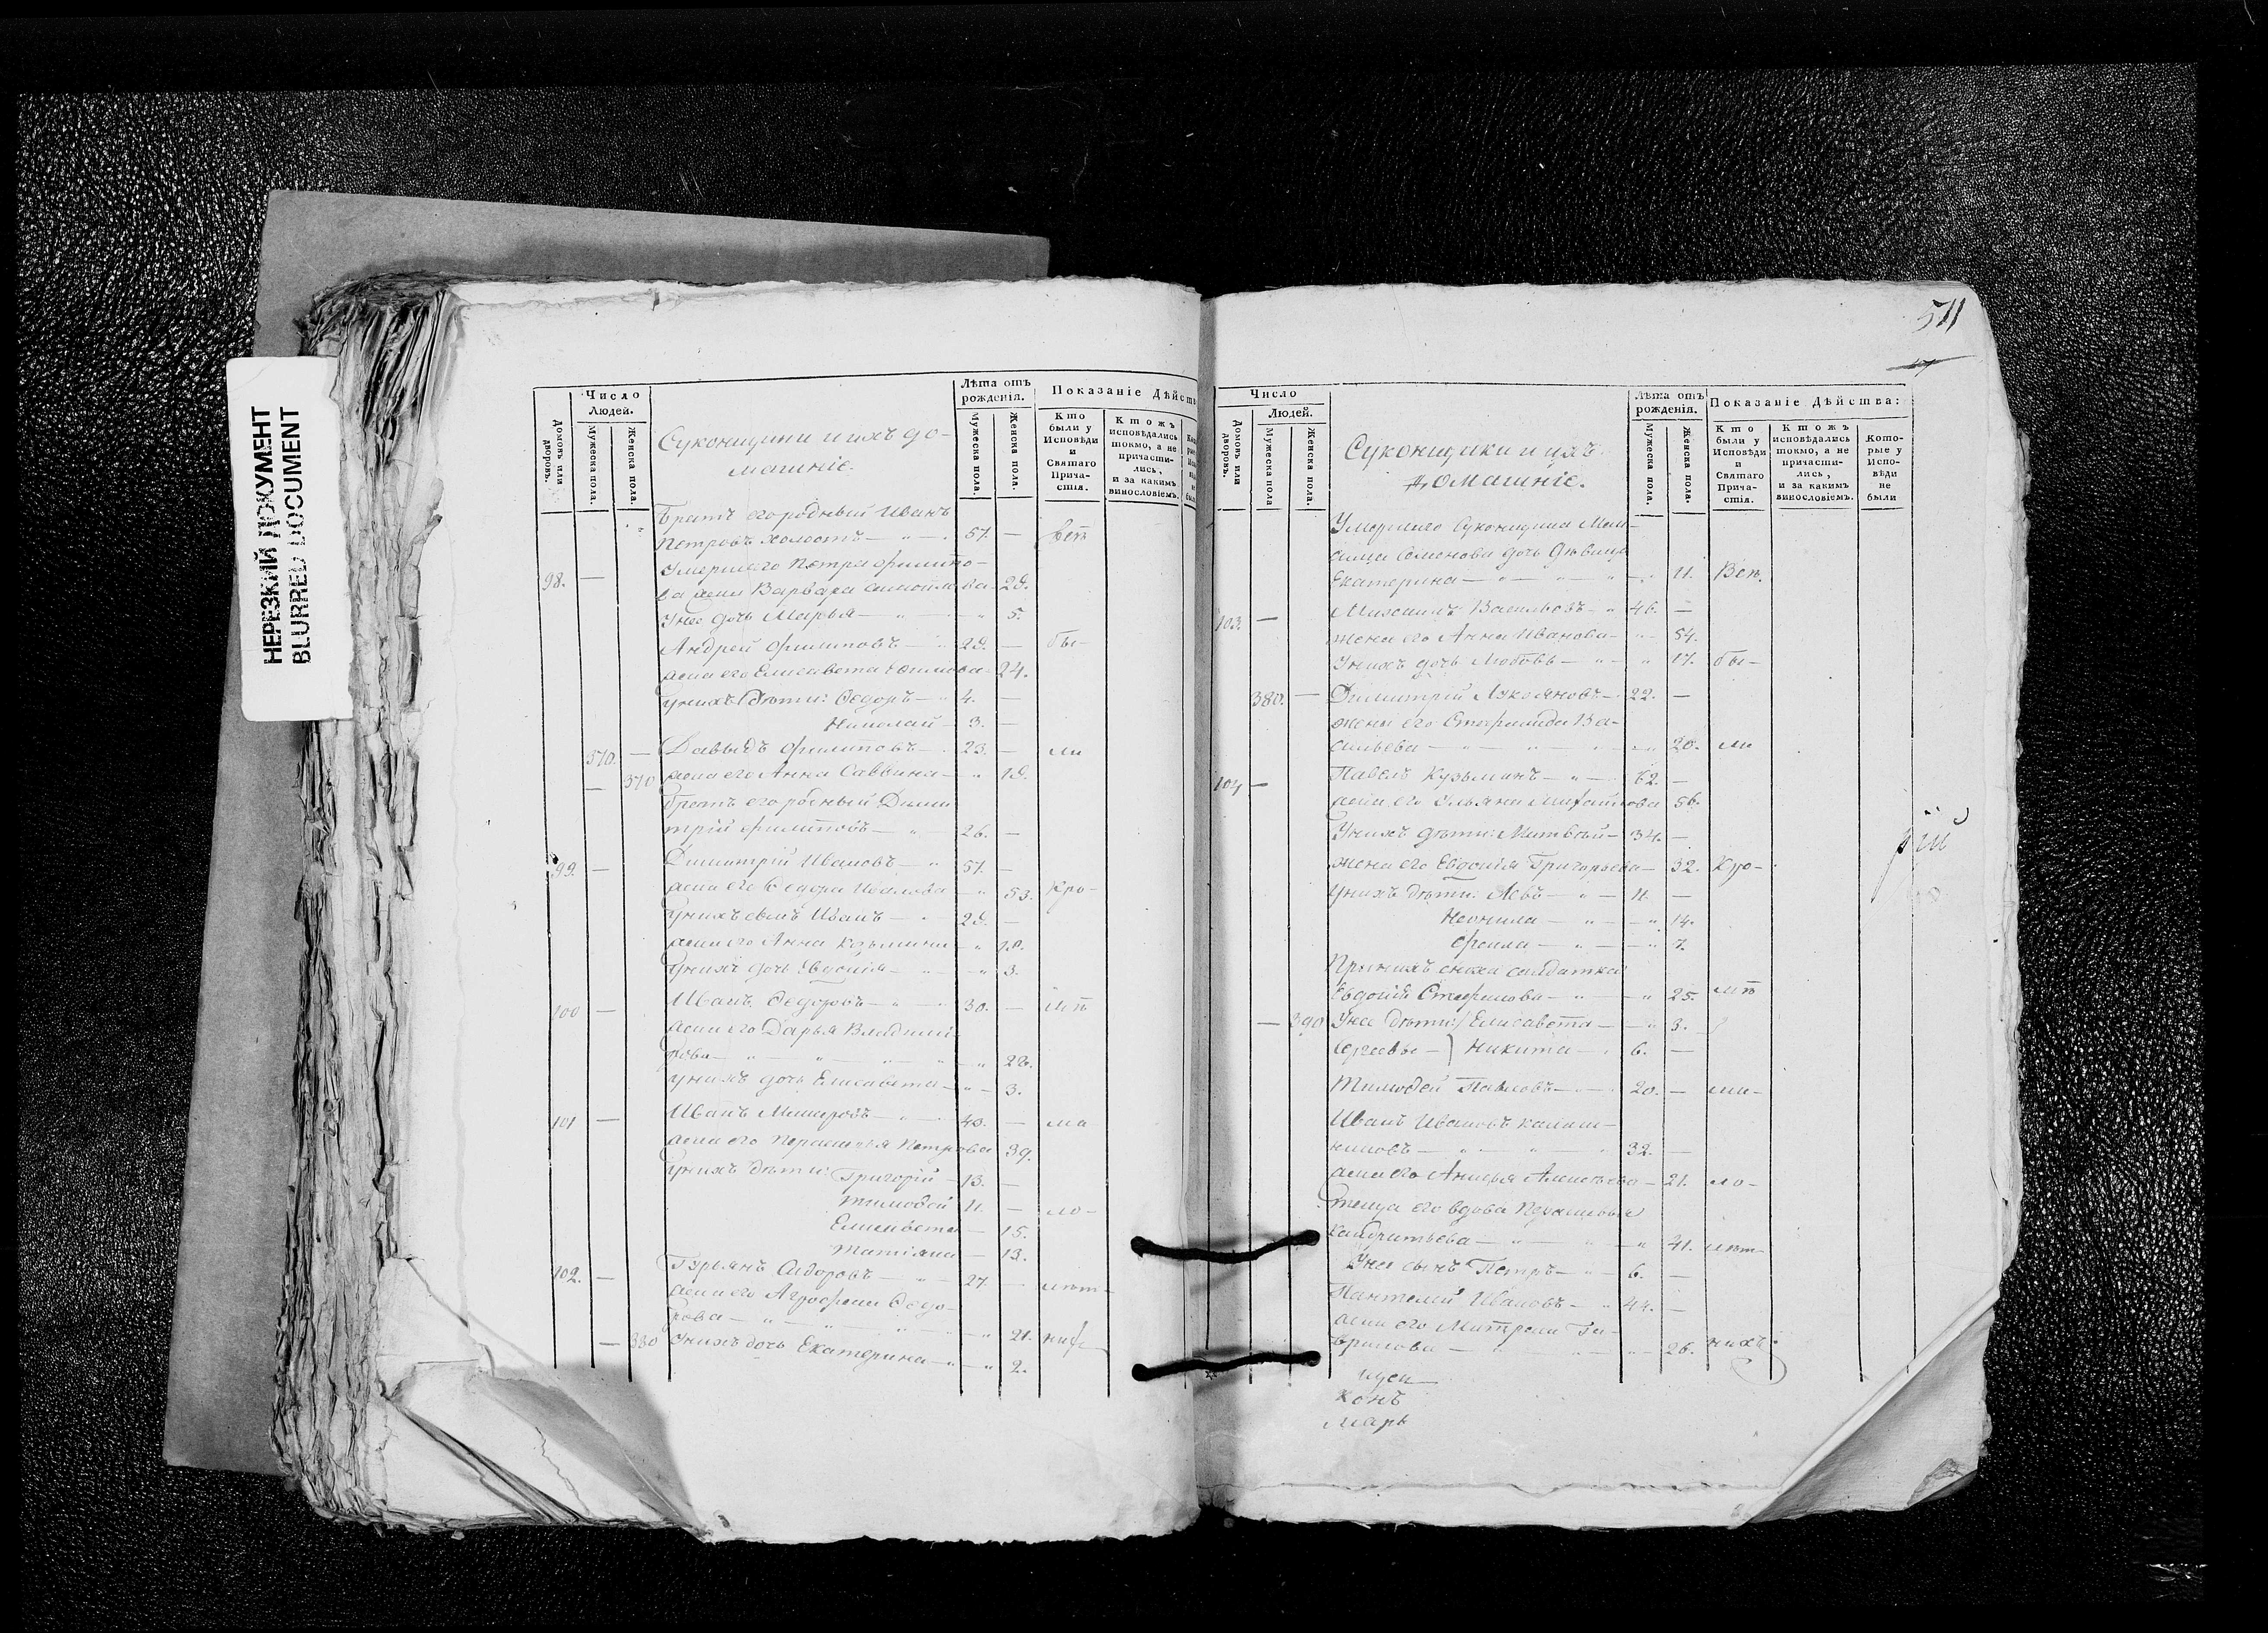 НЕРЕЗКИЙ ДОКУМЕНТ
BLURRED DOCUMENT
Число
Людей.
Домовъ или дворовъ.
Мужеска пола.
Женска пола.
Суконщики и ихъ до-
машніе.
Лѣта отъ
рожденія.
Мужеска пола.
Женска пола.
Показаніе Дѣйств
Кто были у Исповѣди и Святаго Прича-стія.
Ктожъ исповѣдались токмо, а не причасти-лись, и за какимъ винословіемъ.
Братъ его родный Иванъ
Петровъ холостъ — 57. — Всѣ
Умершего Петра Филипо-
98. — ва жена Варвара — 29.
У нее дочь Марья — 5.
Андрей Филиповъ — 29. — бы-
жена его Елисавета — 24.
у нихъ дѣти: Ѳедоръ — 4. —
Николай — 3. —
370. — Давыдъ Филиповъ — 23. — ли
— 370 жена его Анна Саввина — 19.
братъ его родный Дими
трій Филиповъ — 26. —
99. — Димитрій Ивановъ — 57. —
жена его Ѳедора Иванова — 53. Кро-
у нихъ сынъ Иванъ — 29. —
жена его Анна Козьмина —
у нихъ дочь Евдокія — 3.
100 — Иванъ Ѳедоровъ — 30. — мѣ
жена его Дарья Владими
рова — 22.
у нихъ дочь Елисавета — 3.
101 — Иванъ — 43. — ма
жена его Петрова 39.
у нихъ дѣти: Григорій — 13. —
Тимофей 11. — ло-
Елисавета — 15.
Татіана — 13.
102. — Гурьянъ Сидоровъ — 27. — лѣт-
жена его Агрофена Ѳедо-
рова — 21. нихъ
— 380 У нихъ дочь Екатерина — 2.
511
Число
Людей.
Домовъ или дворовъ.
Мужеска пола
Женска пола.
Суконщики и ихъ
домашніе.
Лѣта отъ
рожденія.
Мужеска пола.
Женска пола.
Показаніе Дѣйства:
Кто были у Исповѣди и Святаго Прича-стія.
Ктожъ исповѣдались токмо, а не причасти-лись, и за какимъ винословіемъ.
Кото-рые у Испо-вѣди не были
Умершего Суконщика
Семенова дочь дѣвица
Екатерина — 11. Всѣ.
103. — Михаилъ Васильевъ — 46. —
жена его Анна Иванова — 54.
У нихъ дочь Любовь — 17. бы-
380. — Димитрій Лукояновъ — 22. —
жена его Стефанида Ва-
сильева — 20. ли
104 — Павелъ Кузьминъ — 62. —
жена его Ульяна Михайлова 56.
У нихъ дѣти: Матвѣй — 34. —
жена его Евдокія Григорьева — 32. Кро-
У нихъ дѣти: Левъ — 11. —
Неонила — 14.
Фекла — 7.
При нихъ сноха солдатка
Евдокія Стефанова — 25. мѣ
— 390 У нее дѣти: Елисавета — 3.
Сергѣевы — Никита — 6. —
Тимофей Павловъ — 20. — ма-
Иванъ Ивановъ Калаш-
никовъ — 32. —
жена его Анисья Алексѣева — 21. ло-
теща его вдова
— 41. лѣт-
У нее сынъ Петръ — 6. —
Пантелей Ивановъ — 44. —
жена его Матрена Га-
врилова — 26. нихъ
Конъ
Марь
рій